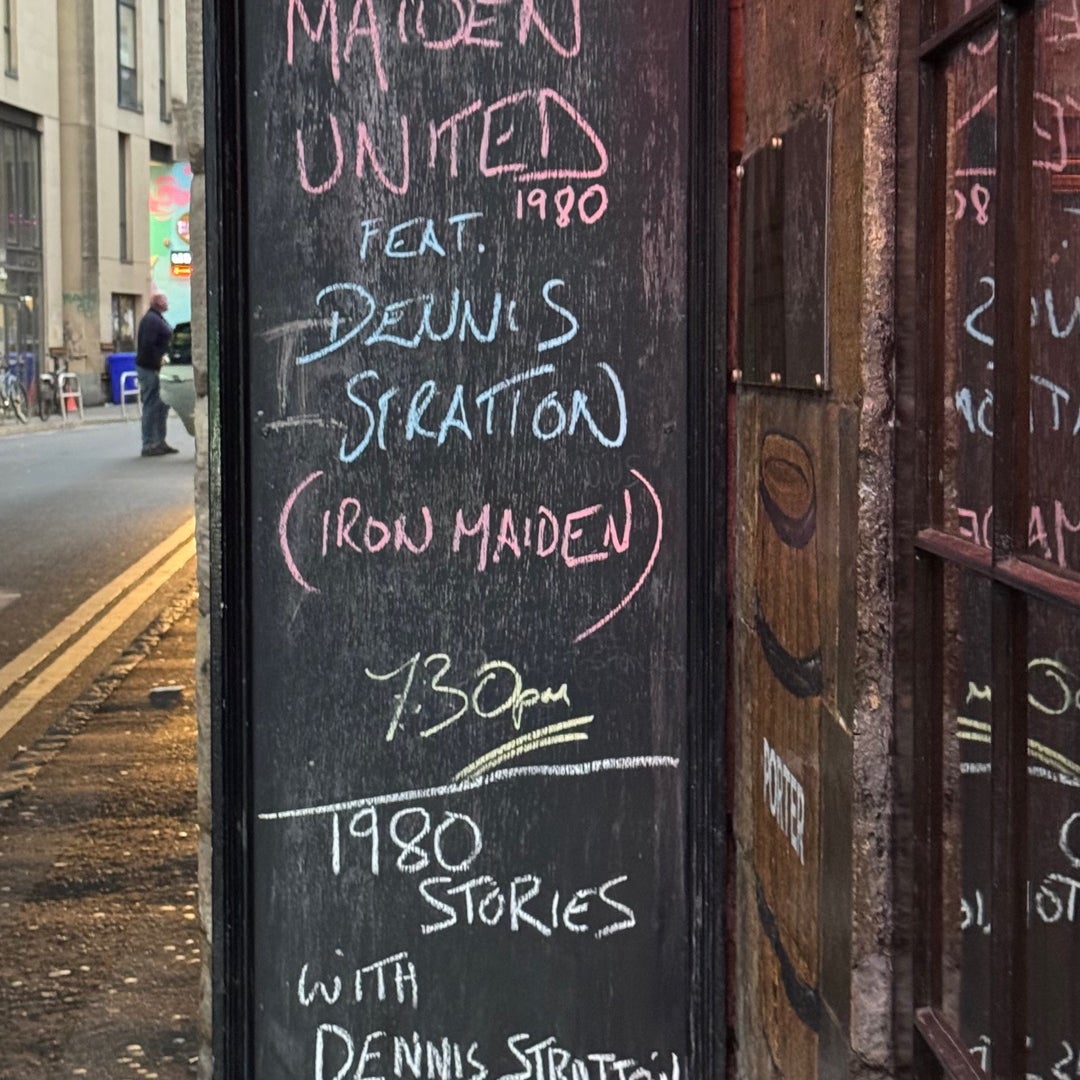 MAIDEN
UNITED
1980
FEAT.
DENNIS
STRATTON
(IRON MAIDEN)
7.30pm
1980
STORIES
WITH
DENNIS STRATTON
PORTER